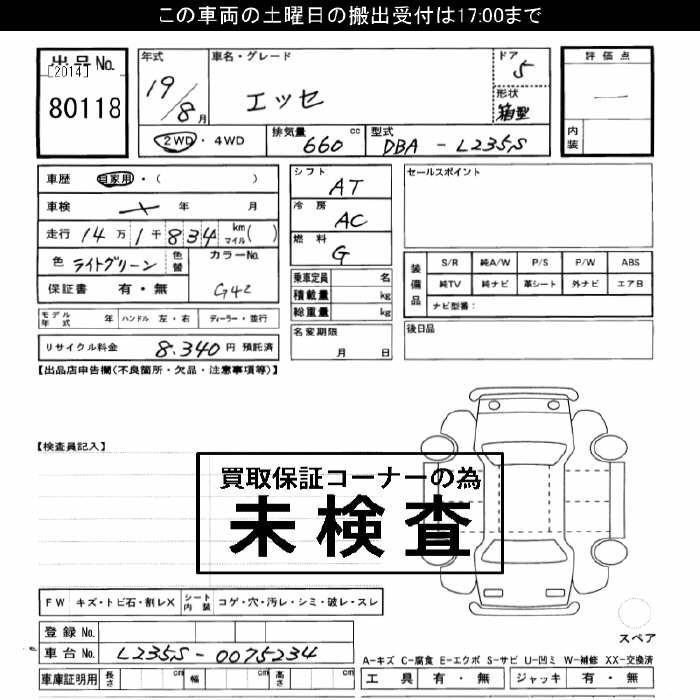 この車両の土曜日の搬出受付は17:00まで
出品No.
[2014]
80118
年式
19/8月
車名・グレード
エッセ
ドア
5
形状
箱型
評価点
―
内装
2WD・4WD
排気量 660 cc
型式 DBA-L235S
車歴 自家用・( )
車検 年 月
走行 14万1千834 km マイル( )
色 ライトグリーン 色替
カラーNo. G42
保証書 有・無
シフト AT
冷房 AC
燃料 G
乗車定員 名
積載量 kg
総重量 kg
セールスポイント
装備品
S/R A/W P/S P/W ABS
純TV 純ナビ 革シート 外ナビ エアB
ナビ型番:
モデル年式 年 ハンドル 左・右 ディーラー・並行
リサイクル料金 8.340円 預託済
名変期限
月 日
後日品
【出品店申告欄(不良箇所・欠品・注意事項等)】
【検査員記入】
買取保証コーナーの為
未検査
FW キズ・トビ石・割レX シート内装 コゲ・穴・汚レ・シミ・破レ・スレ
スペア
登録No.
車台No. L235S-0075234
A-キズ C-腐食 E-エクボ S-サビ U-凹ミ W-補修 XX-交換済
車庫証明用 長さ cm 幅 cm 高さ cm
工具 有・無 ジャッキ 有・無